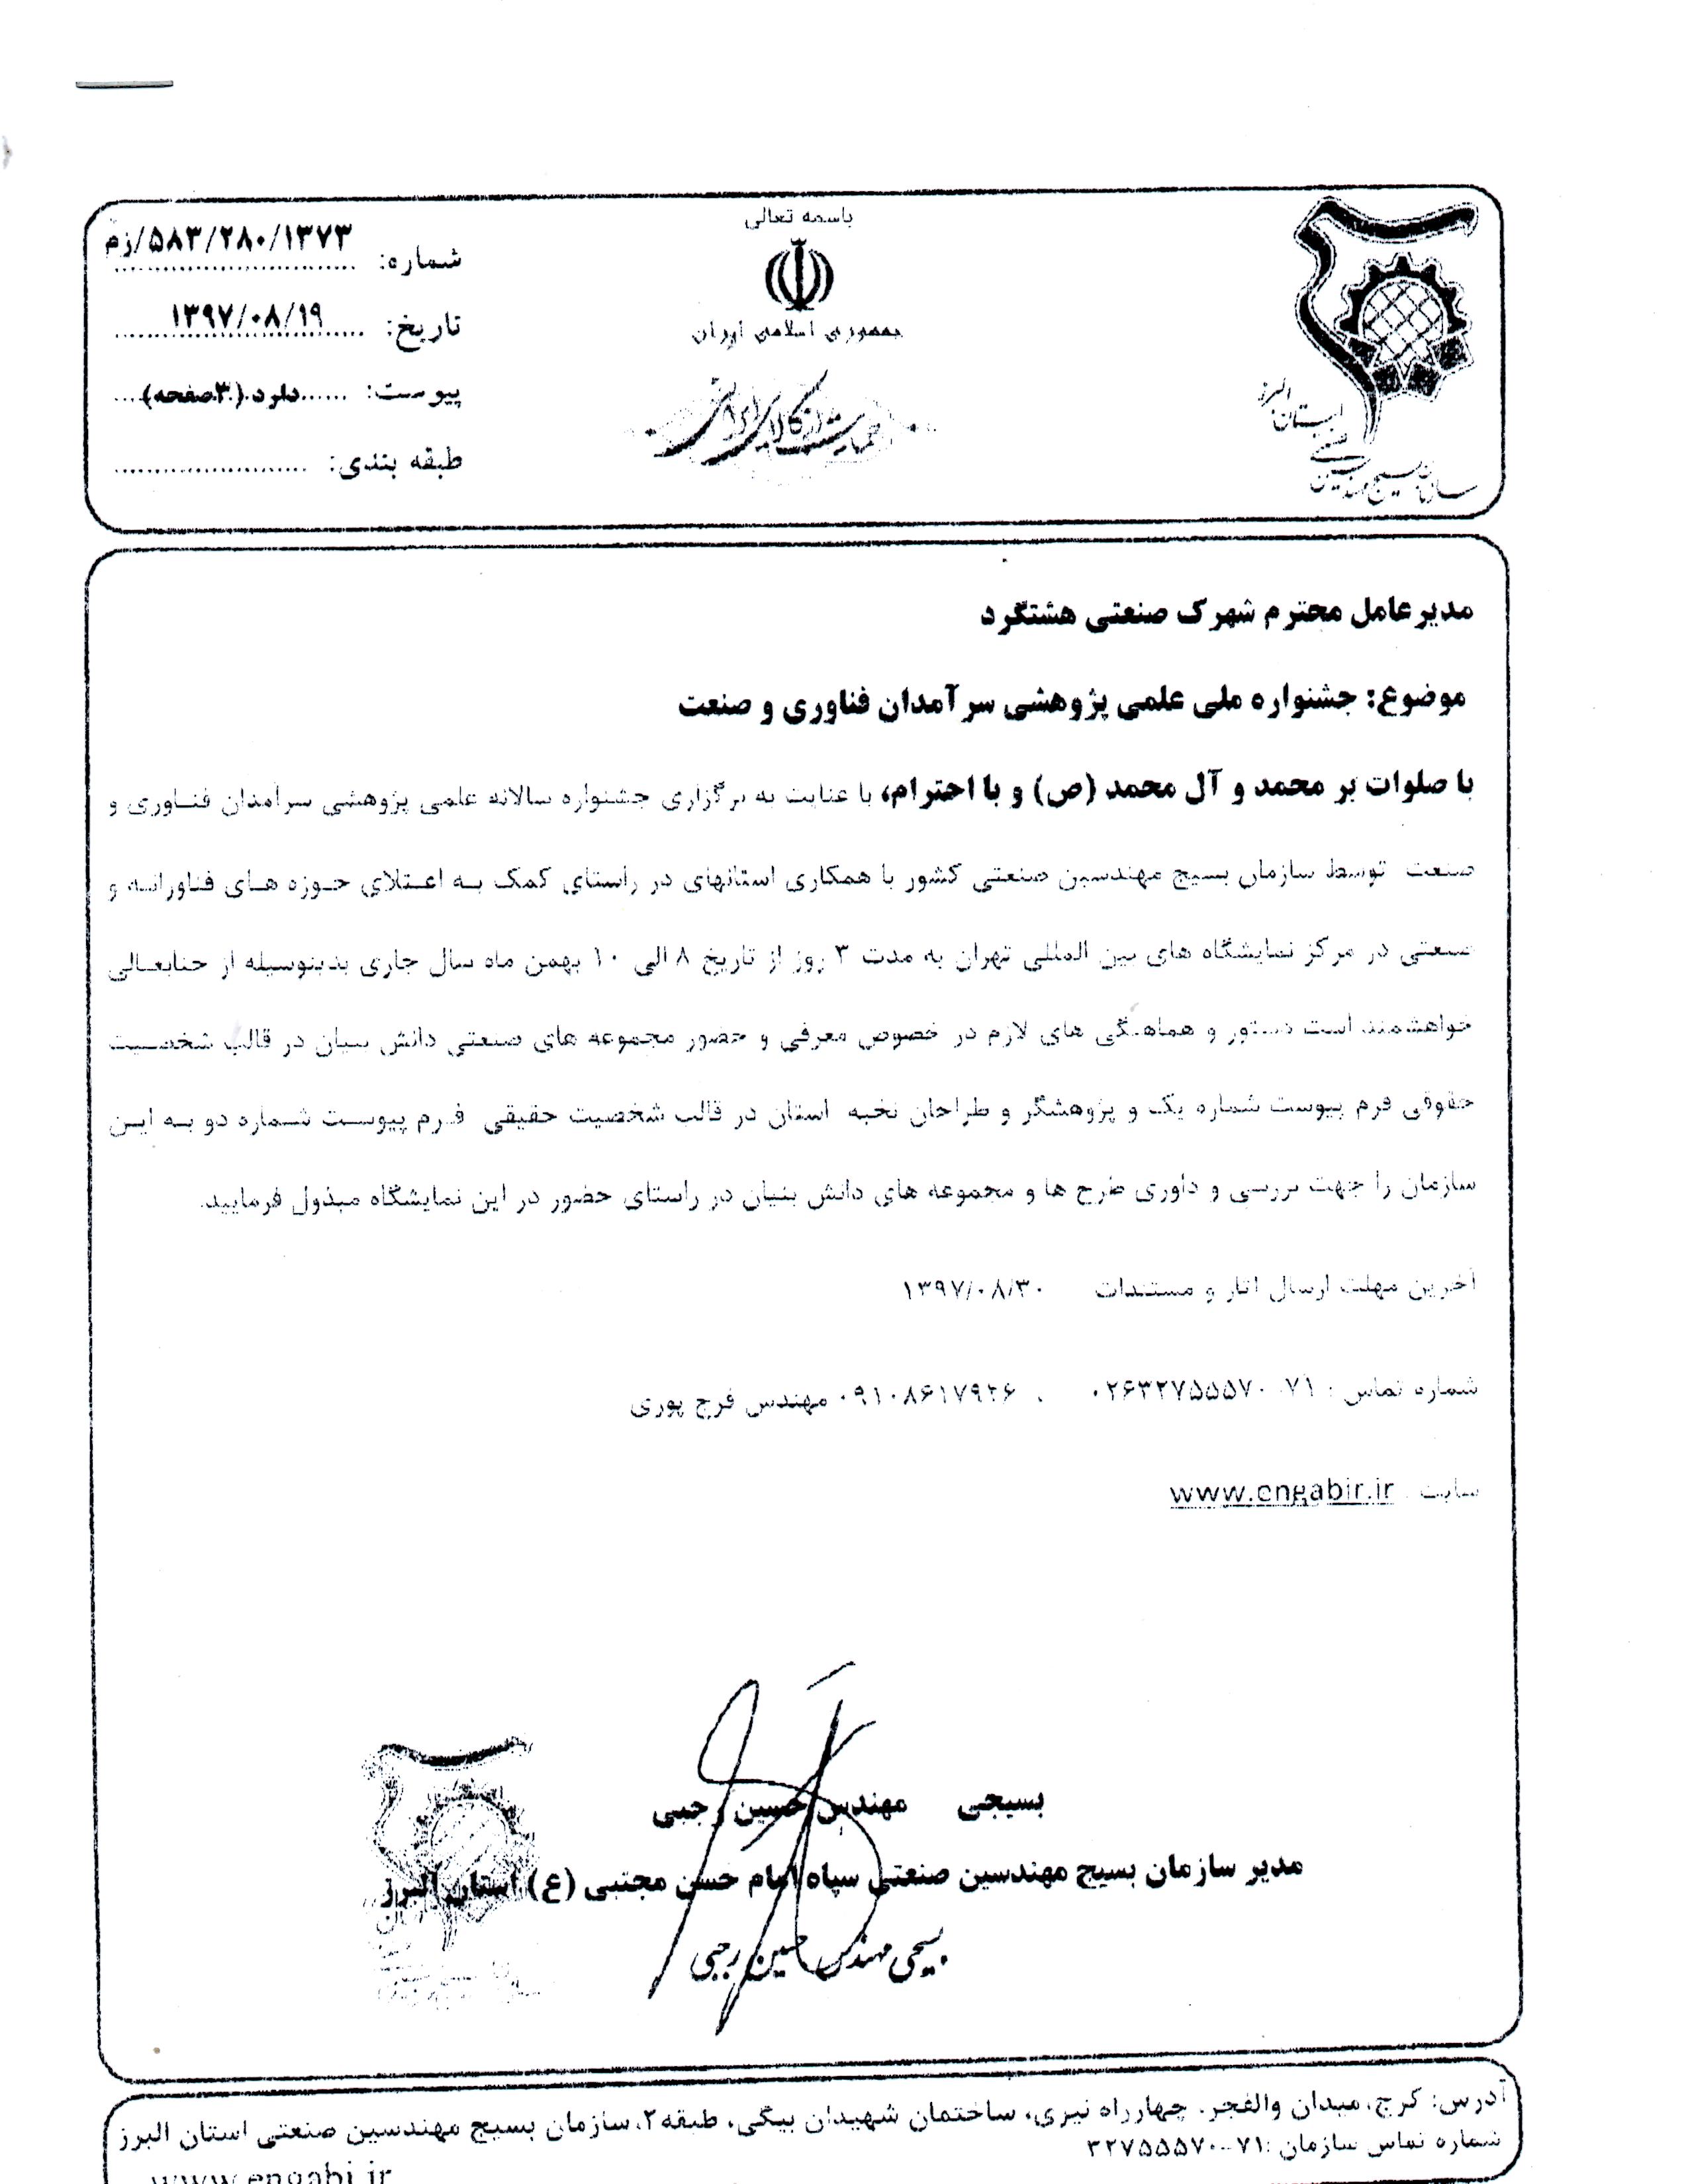 باسمه تعالی
جمهوری اسلامی ایران
حمایت از کالای ایرانی
سازمان بسیج مهندسین صنعتی استان البرز
شماره: ۵۸۳/۲۸۰/۱۳۷۳/زم
تاریخ: ۱۳۹۷/۰۸/۱۹
پیوست: ......دارد.(۳صفحه)....
طبقه بندی: ........................
مدیرعامل محترم شهرک صنعتی هشتگرد
موضوع: جشنواره ملی علمی پژوهشی سرآمدان فناوری و صنعت
با صلوات بر محمد و آل محمد (ص) و با احترام، با عنایت به برگزاری جشنواره سالانه علمی پژوهشی سرآمدان فناوری و
صنعت توسط سازمان بسیج مهندسین صنعتی کشور با همکاری استانهای در راستای کمک به اعتلای حوزه های فناورانه و
صنعتی در مرکز نمایشگاه های بین المللی تهران به مدت ۳ روز از تاریخ ۸ الی ۱۰ بهمن ماه سال جاری بدینوسیله از جنابعالی
خواهشمند است دستور و هماهنگی های لازم در خصوص معرفی و حضور مجموعه های صنعتی دانش بنیان در قالب شخصیت
حقوقی فرم پیوست شماره یک و پژوهشگر و طراحان نخبه استان در قالب شخصیت حقیقی فرم پیوست شماره دو به این
سازمان را جهت بررسی و داوری طرح ها و مجموعه های دانش بنیان در راستای حضور در این نمایشگاه مبذول فرمایید.
آخرین مهلت ارسال آثار و مستندات ۱۳۹۷/۰۸/۳۰
شماره تماس : ۷۱-۰۲۶۳۲۷۵۵۵۷۰ ، ۰۹۱۰۸۶۱۷۹۲۶ مهندس فرج پوری
سایت : www.engabir.ir
بسیجی مهندس حسین رجبی
مدیر سازمان بسیج مهندسین صنعتی سپاه امام حسن مجتبی (ع) استان البرز
بسیجی مهندس حسین رجبی
آدرس: کرج، میدان والفجر، چهارراه نیری، ساختمان شهیدان بیگی، طبقه۲، سازمان بسیج مهندسین صنعتی استان البرز
شماره تماس سازمان :۷۱-۳۲۷۵۵۵۷۰
www.engabi.ir